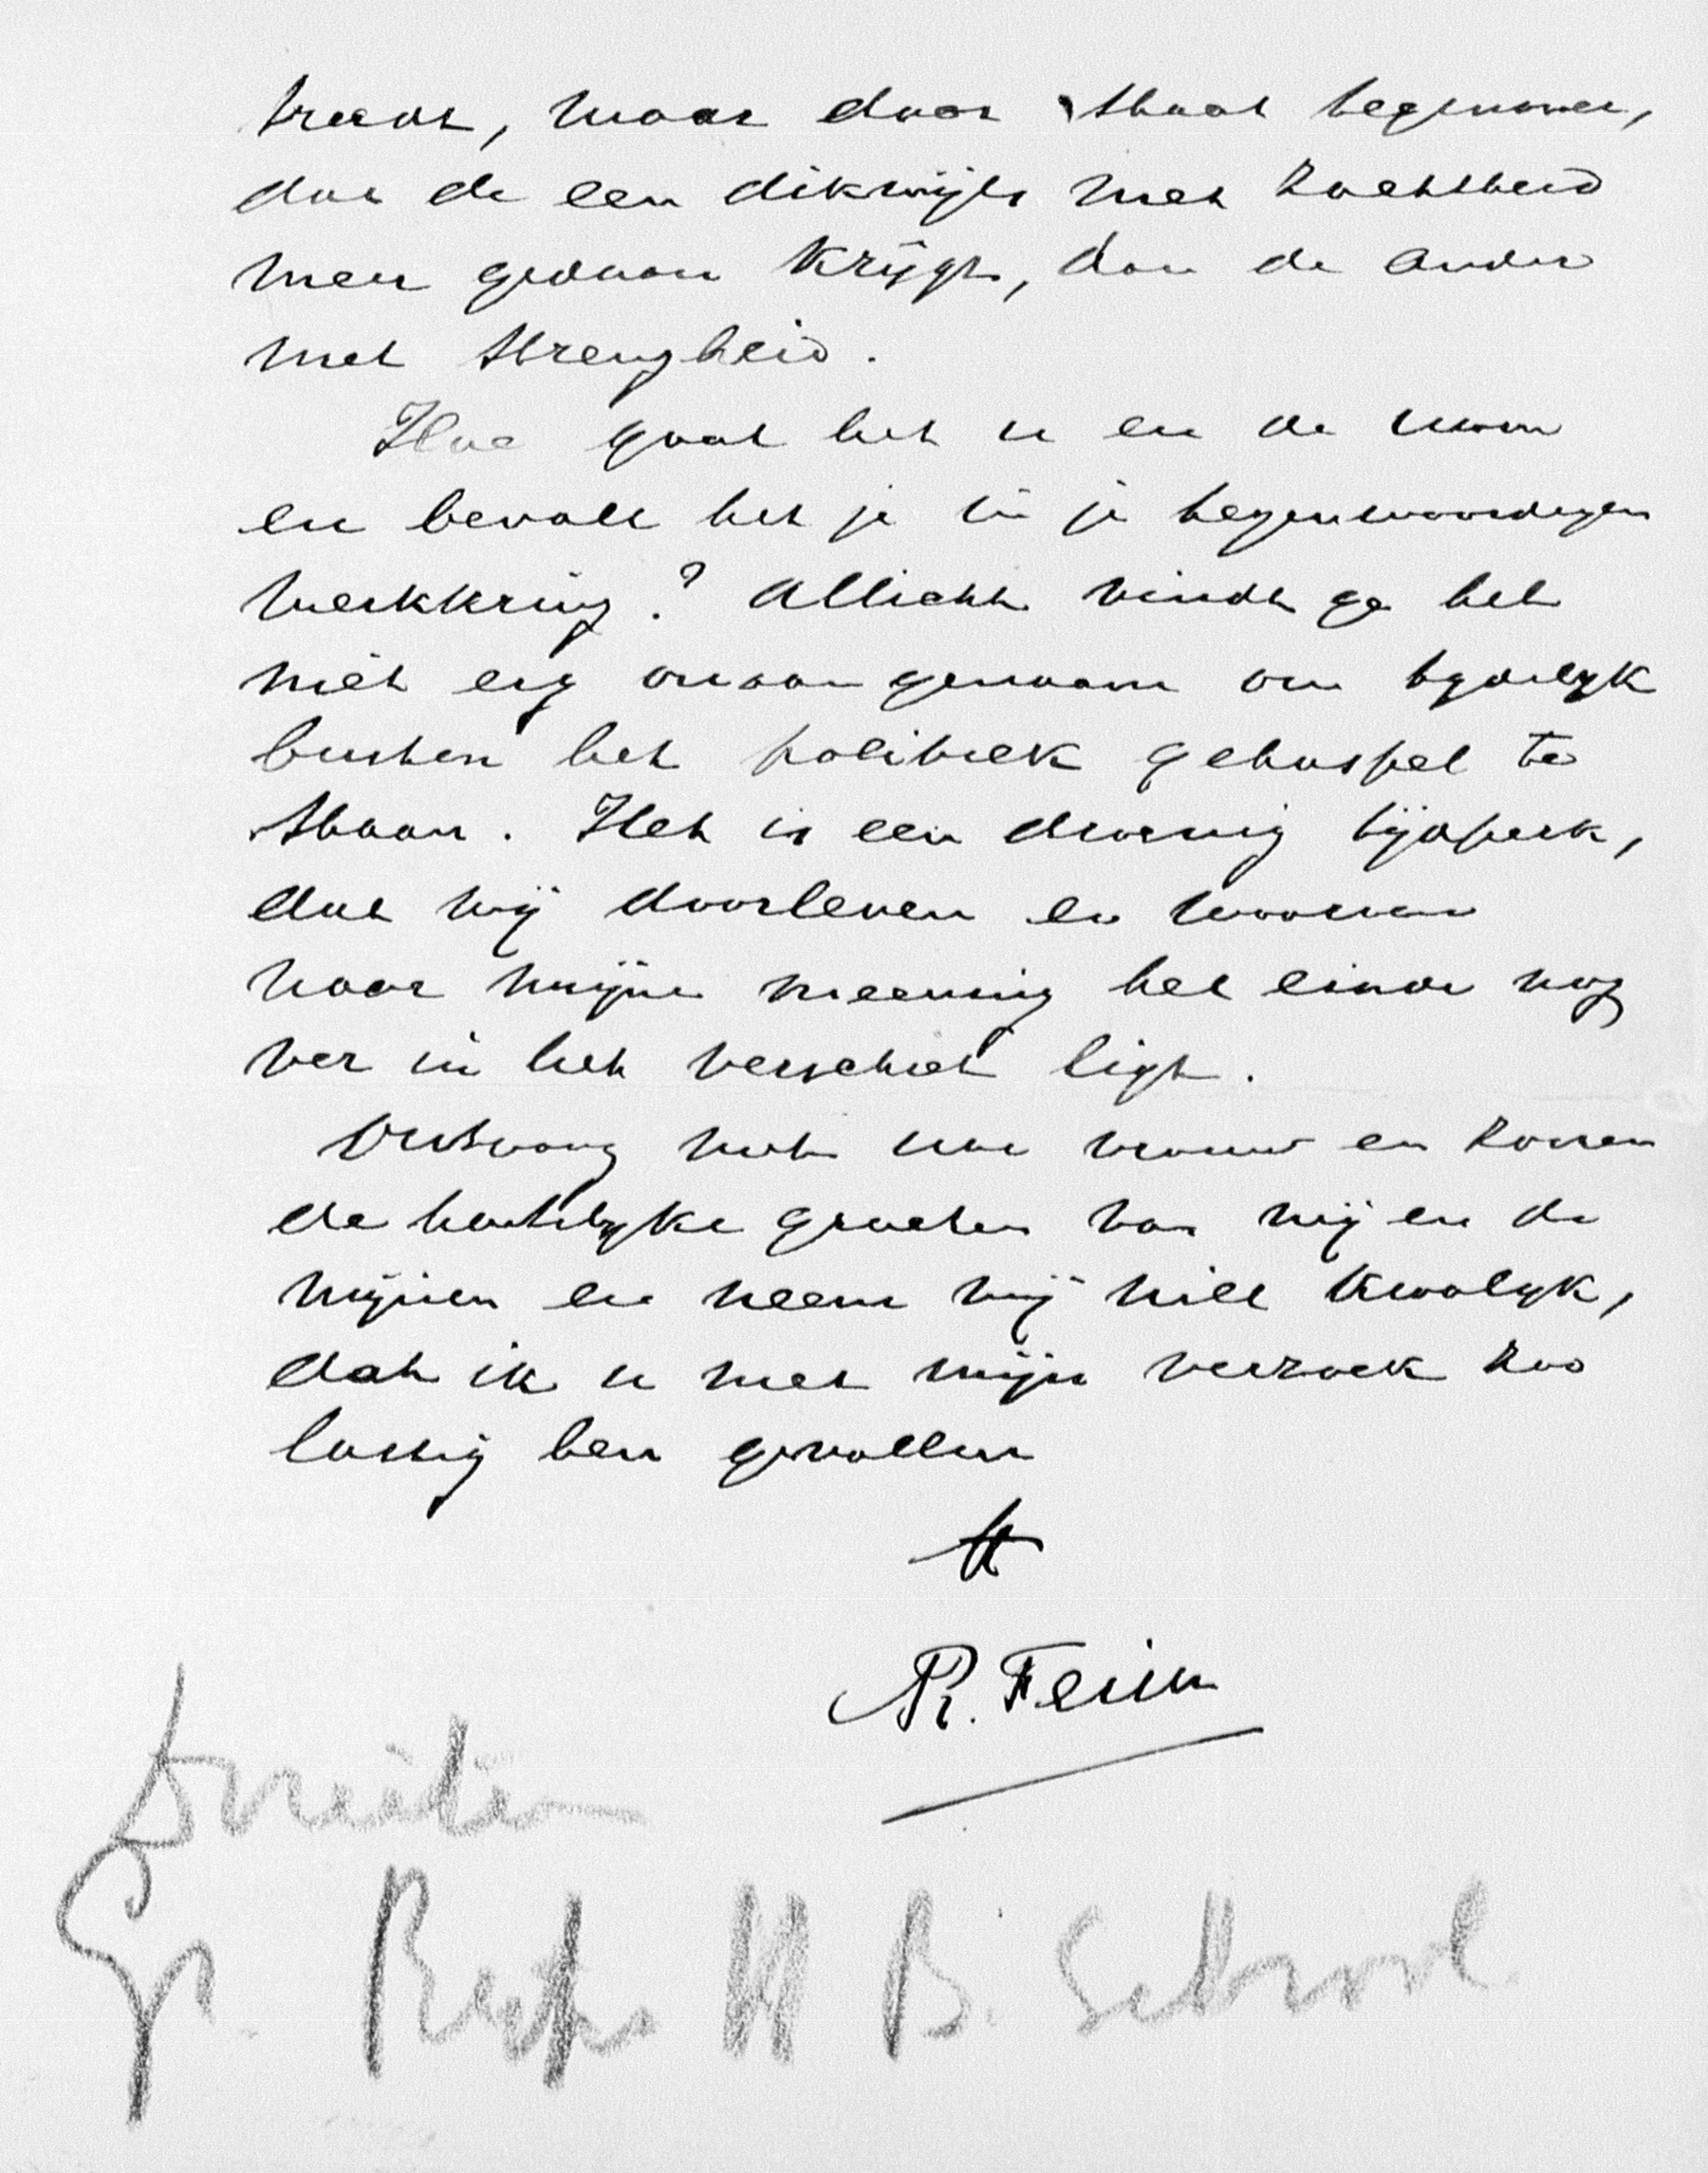 treedt, maar daar staat tegenover,
dat de een dikwijls met zachtheid
meer gedaan krijgt, dan de ander
met strengheid.
Hoe gaat het u en de uwen
en bevalt het je in je tegenwoordigen
werkkring? Allicht vindt ge het
niet erg onaangenaam om tydelyk
buiten het politiek gehaspel te
staan. Het is een droevig tijdperk,
dat wij doorleven en waarvan
naar mijne meening het einde nog
ver in het verschiet ligt.
Ontvang met uw vrouw en zonen
de hartelyke groeten van mij en de
mijnen en neem mij niet kwalyk,
dat ik u met mijn verzoek zoo
lastig ben gevallen
tt
R. Feim
H B. School